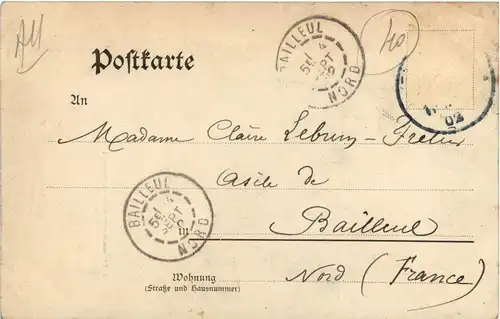 All
Postkarte
BAILLEUL
NORD
5E / 4
SEPT
40
02
An
Madame Claire Lebrun-
Asile de
BAILLEUL
NORD
5E / 4
SEPT
in
Bailleul
Wohnung
(Straße und Hausnummer)
Nord (France)